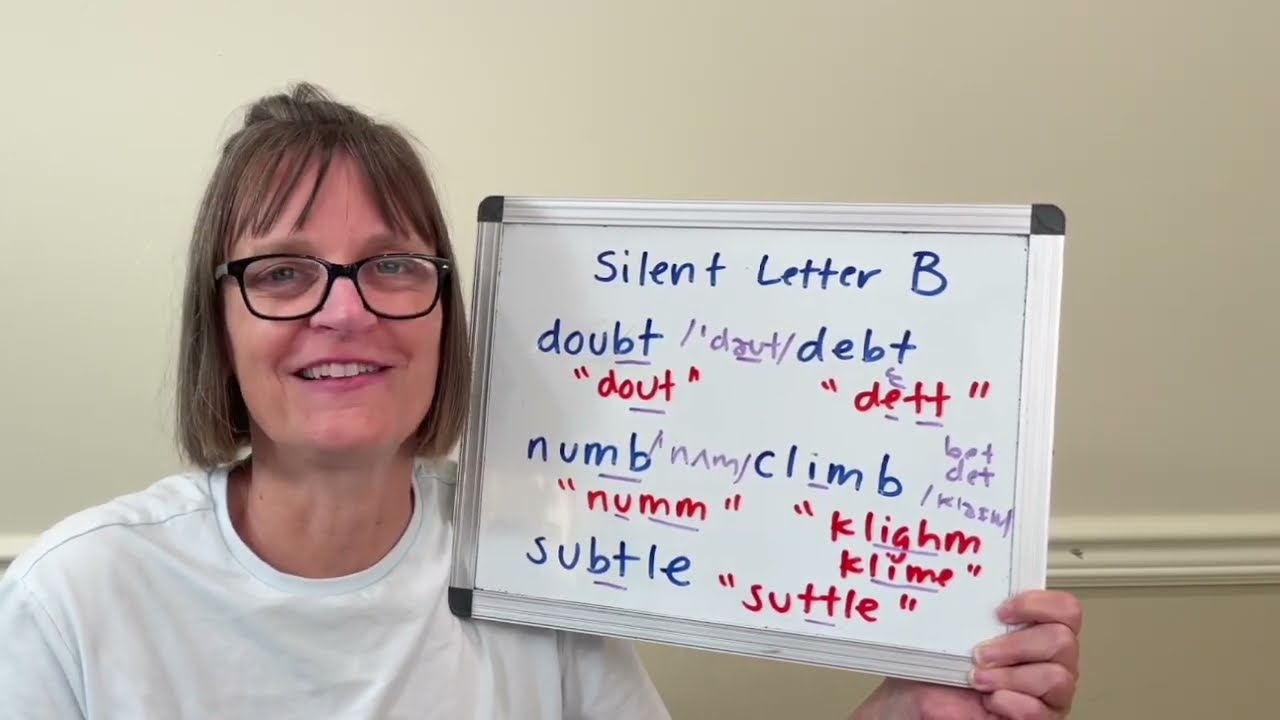 Silent Letter B
doubt /'daut/ debt
"dout" "dett"
numb /'nʌm/ climb
bet
det
"numm" "klighm
klime"
subtle
"suttle"